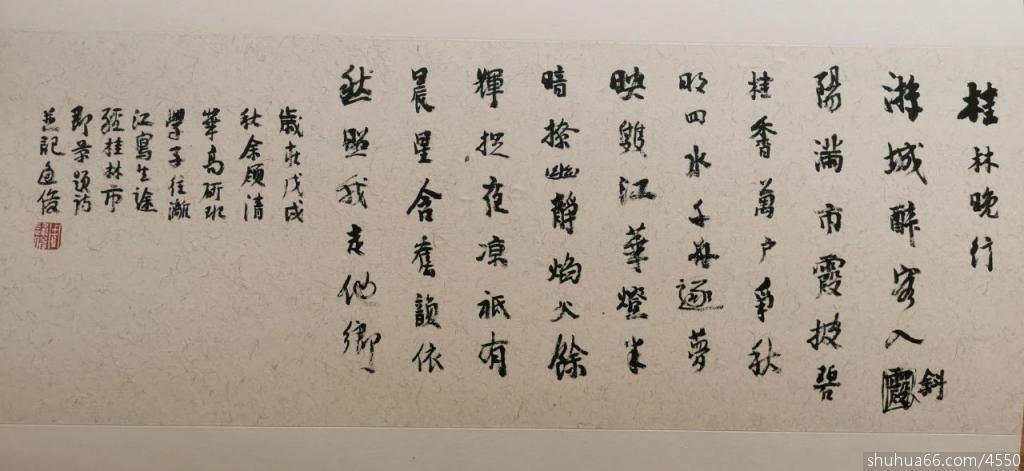 桂林晚行
游城醉客入斜
陽滿市霞披碧
桂香萬户爭秋
明四水千舟逐夢
映雙江華燈半
暗撩幽靜焰火餘
輝捉夜凉祇有
晨星含舊韻依
然照我走他鄉
歲在戊戌
秋余領清
華高研班
學子往灕
江寫生途
經桂林市
即景題詩
並記俊
shuhua66.com/4550